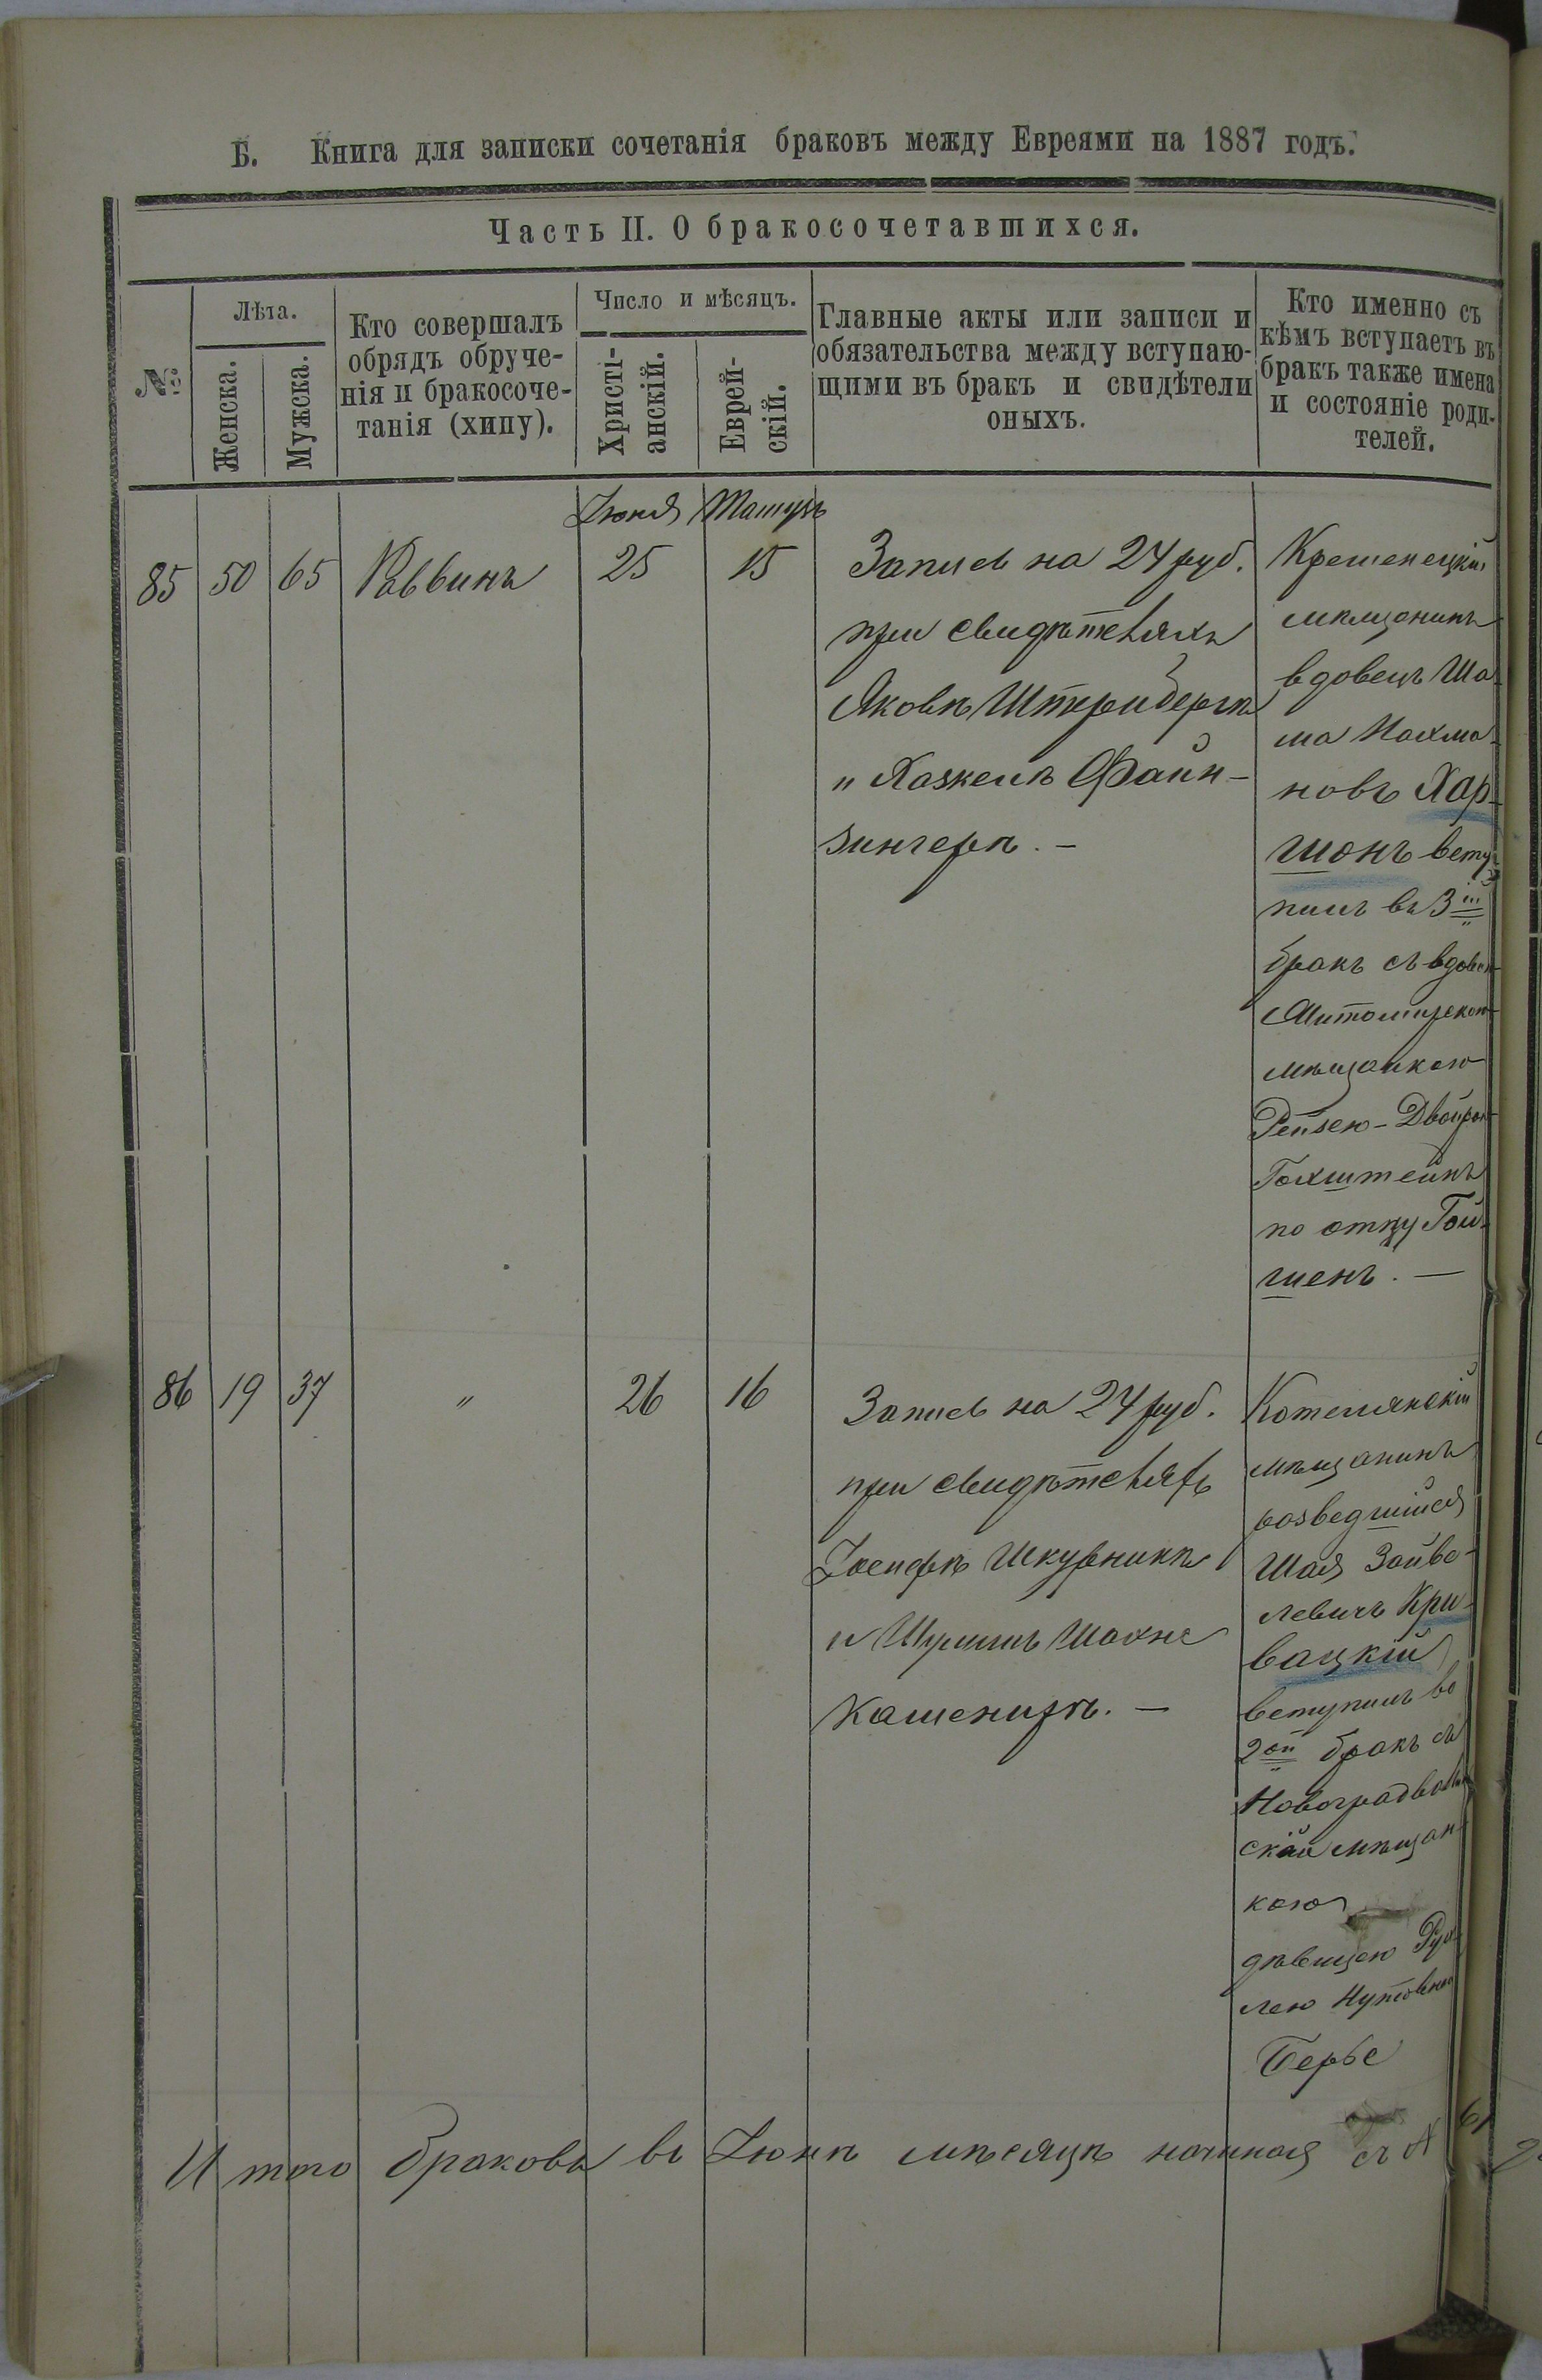 Б. Книга для записки сочетанія браковъ между Евреями на 1887 годъ.
Часть II. О бракосочетавшихся.
№
Лѣта.
Женска.
Мужска.
Кто совершалъ
обрядъ обруче-
нія и бракосоче-
танія (хипу).
Число и мѣсяцъ.
Христі-
анскій.
Еврей-
скій.
Главные акты или записи и
обязательства между вступаю-
щими въ бракъ и свидѣтели
оныхъ.
Кто именно съ
кѣмъ вступаетъ въ
бракъ также имена
и состояніе роди-
телей.
Іюня
85 50 65 Раввинъ 25 15
Запись на 24 руб.
при свидѣтеляхъ
Яковѣ Штернбергѣ
и Хаскелѣ Файн-
зингерѣ. —
Кременецкій
мѣщанинъ
вдовецъ Шо-
ма Нахма-
новъ Хар-
шонъ всту-
пилъ въ 3ій
бракъ съ вдовою
Житомирскою
мѣщанкою
Рейзею-Двойрою
Гохштейнъ
по отцу Гой-
шенъ. —
86 19 37 " 26 16
Запись на 24 руб.
при свидѣтеляхъ
Іосифѣ Шкурникѣ
и Шулимъ Шахне
Кашенирѣ. —
Котелянскій
мѣщанинъ
разведшійся
Шая Зойве-
левичъ Кри-
вацкій
вступилъ во
2ой бракъ съ
Новоградволын
ской мѣщан-
кою
дѣвицею Рух
лею
Берье
Итого браковъ въ Іюнѣ мѣсяцѣ начиная съ № 61